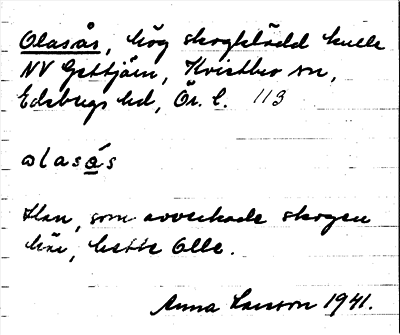 Olasås, hög skogklädd kulle
NV Gettjärn, Kvistbro sn,
Edsbergs hd, Ör. l. 113
olasås
Han, som avverkade skogen
här, hette Olle.
Anna Larsson 1941.